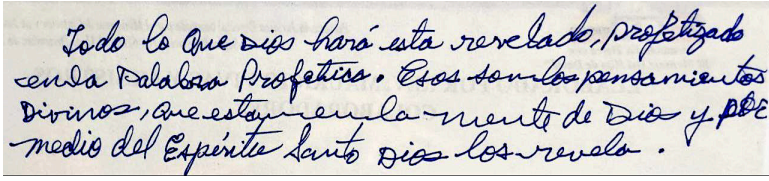 Todo lo que Dios hará esta revelado, profetizado
en la Palabra Profética. Esos son los pensamientos
Divinos, que están en la mente de Dios y por
medio del Espíritu Santo Dios los revela.